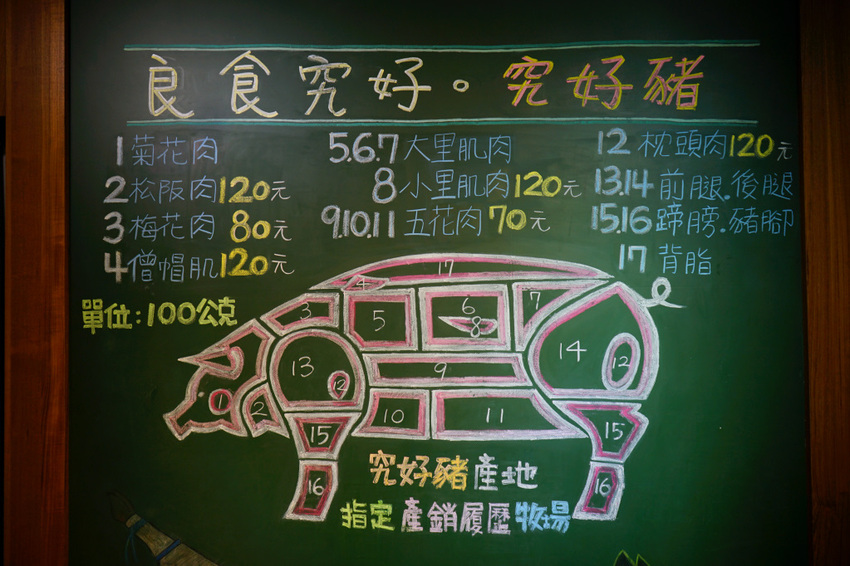 良食究好。究好豬
1菊花肉
2松阪肉120元
3梅花肉 80元
4僧帽肌120元
單位:100公克
5.6.7大里肌肉
8小里肌肉120元
9.10.11五花肉70元
12 枕頭肉120元
13.14 前腿.後腿
15.16蹄膀.豬腳
17 背脂
17
4
3
5
6
8
7
13
12
9
14
12
1
2
10
11
15
15
16
16
究好豬產地
指定產銷履歷牧場